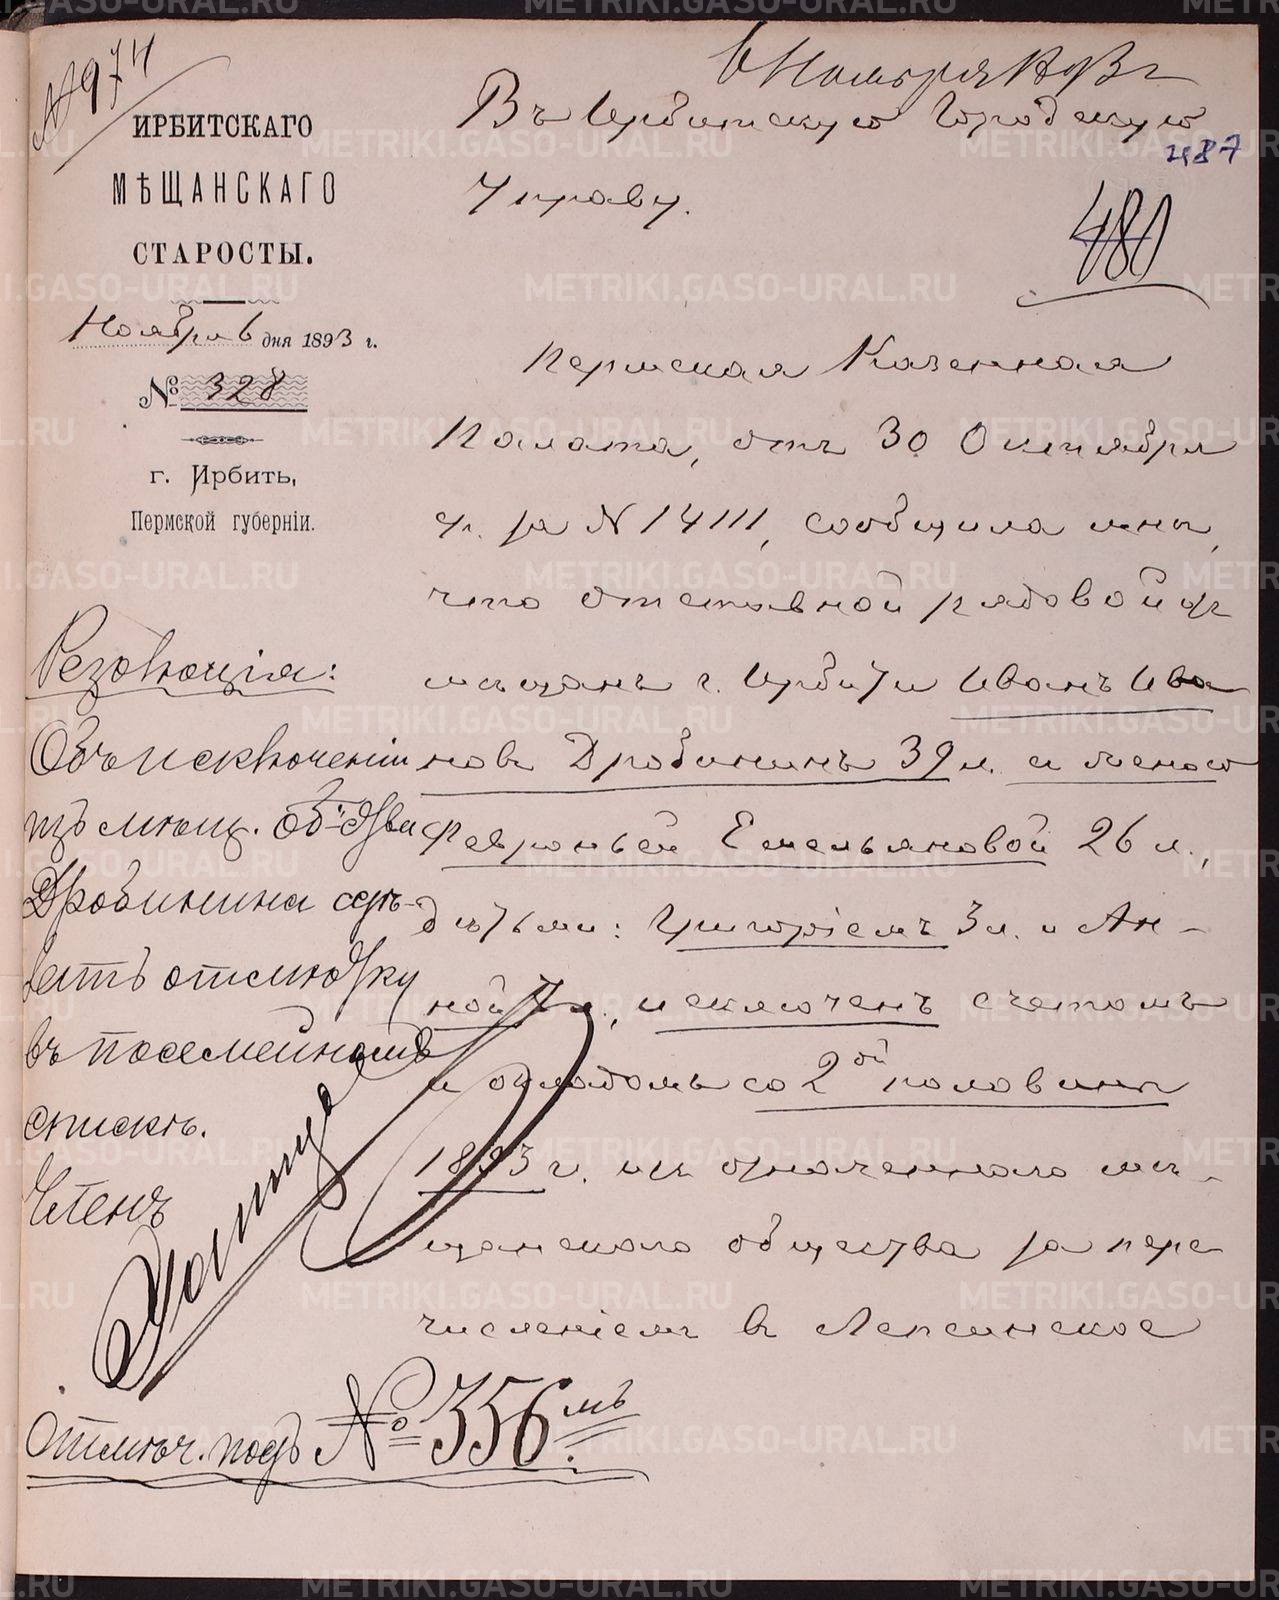 № 974
6 Ноября 1893 г
ИРБИТСКАГО
МѢЩАНСКАГО
СТАРОСТЫ.
Ноября 6 дня 1893 г.
№ 328
г. Ирбить,
Пермской губерніи.
Въ Ирбитскую Городскую
487
Управу.
480
Пермская Казенная
Палата, отъ 30 Октября
с/г. за № 14111, сообщила мнѣ,
что отставной рядовой из
мѣщанъ г. Ирбити Иванъ Ива
новъ Дробининъ 39 л. и женою
Февроньей Емельяновой 26 л.,
дѣтьми: Григоріемъ 3 л. и Ан-
ной 7 л., исключенъ счетомъ
и окладомъ со 2ой половины
1893 г. изъ означеннаго мѣ-
щанскаго общества за пере
численіемъ въ Лепсинское
Резолюція:
Объ исключеніи
изъ мѣщ. об-ва
Дробинина сдѣ-
лать отмѣтку
въ посемейномъ
спискѣ.
Членъ
Отмѣч. подъ № 356мъ.
METRIKI.GASO-URAL.RU